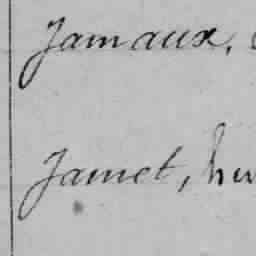 Jamaux,
Jamet,